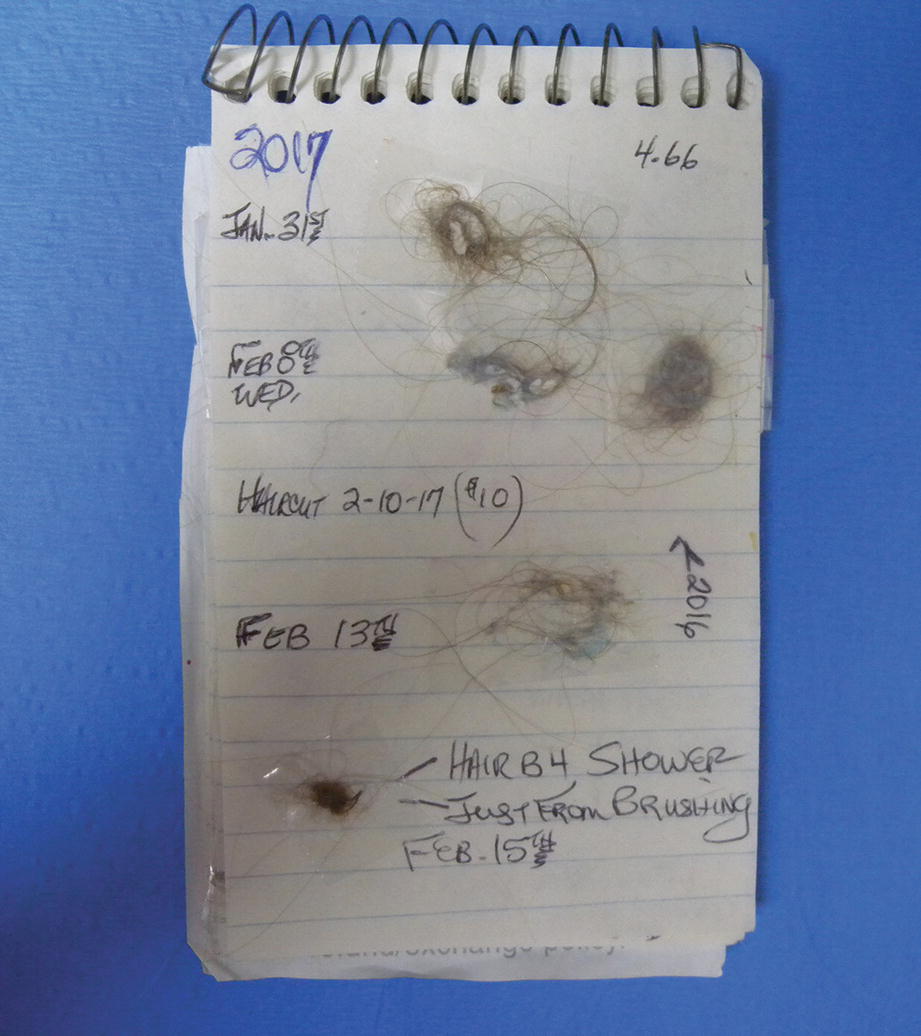 2017
4.66
JAN. 31ST
FEB 8TH
WED.
HAIRCUT 2-10-17 ($10)
<2016
FEB 13TH
HAIR B4 SHOWER
JUST FROM BRUSHING
FEB. 15TH
/exchange policy.